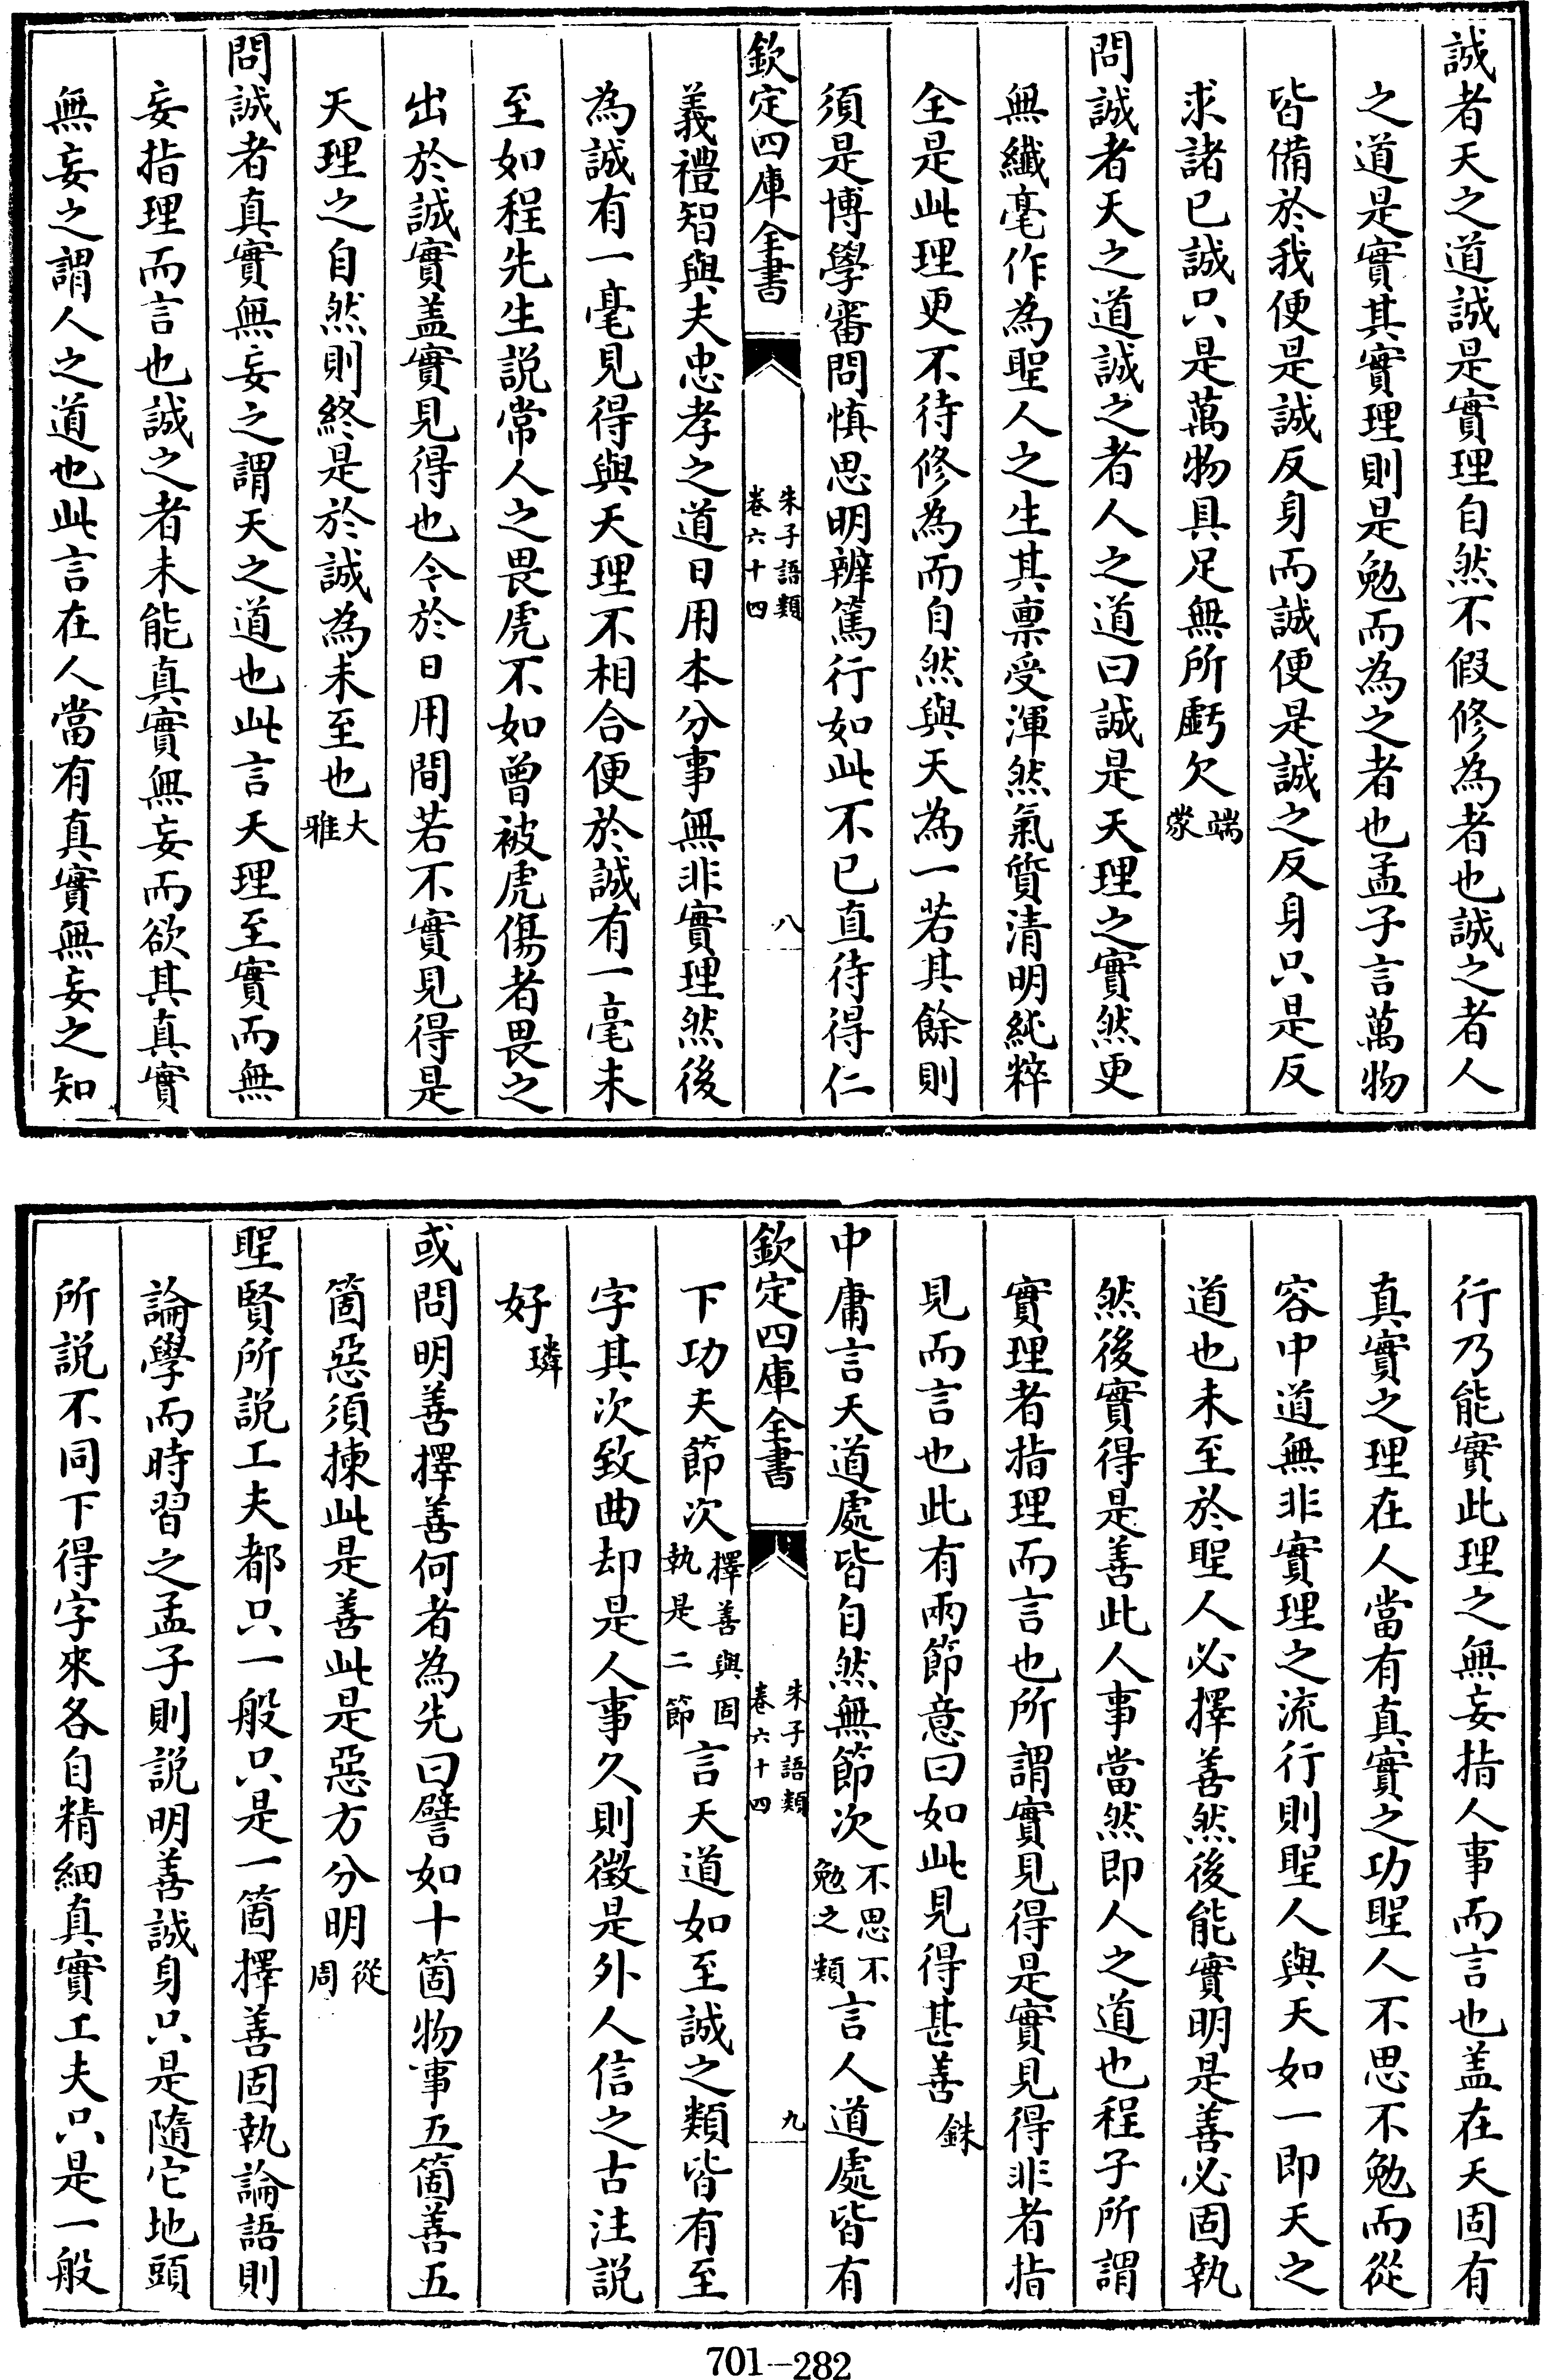 誠者天之道誠是實理自然不假修為者也誠之者人
之道是實其實理則是勉而為之者也孟子言萬物
皆備於我便是誠反身而誠便是誠之反身只是反
求諸已誠只是萬物具足無所虧欠端蒙
問誠者天之道誠之者人之道曰誠是天理之實然更
無纖毫作為聖人之生其稟受渾然氣質清明純粹
全是此理更不待修為而自然與天為一若其餘則
須是博學審問慎思明辨篤行如此不已直待得仁
欽定四庫全書
朱子語類
卷六十四
八
義禮智與夫忠孝之道日用本分事無非實理然後
為誠有一毫見得與天理不相合便於誠有一毫未
至如程先生説常人之畏虎不如曾被虎傷者畏之
出於誠實盖實見得也今於日用間若不實見得是
天理之自然則終是於誠為未至也大雅
問誠者真實無妄之謂天之道也此言天理至實而無
妄指理而言也誠之者未能真實無妄而欲其真實
無妄之謂人之道也此言在人當有真實無妄之知
行乃能實此理之無妄指人事而言也盖在天固有
真實之理在人當有真實之功聖人不思不勉而從
容中道無非實理之流行則聖人與天如一即天之
道也未至於聖人必擇善然後能實明是善必固執
然後實得是善此人事當然即人之道也程子所謂
實理者指理而言也所謂實見得是實見得非者指
見而言也此有兩節意曰如此見得甚善銖
中庸言天道處皆自然無節次不思不勉之類言人道處皆有
欽定四庫全書
朱子語類
卷六十四
九
下功夫節次擇善與固執是二節言天道如至誠之類皆有至
字其次致曲却是人事久則徵是外人信之古注説
好璘
或問明善擇善何者為先曰譬如十箇物事五箇善五
箇惡須揀此是善此是惡方分明從周
聖賢所説工夫都只一般只是一箇擇善固執論語則
論學而時習之孟子則説明善誠身只是隨它地頭
所説不同下得字來各自精細真實工夫只是一般
701-282